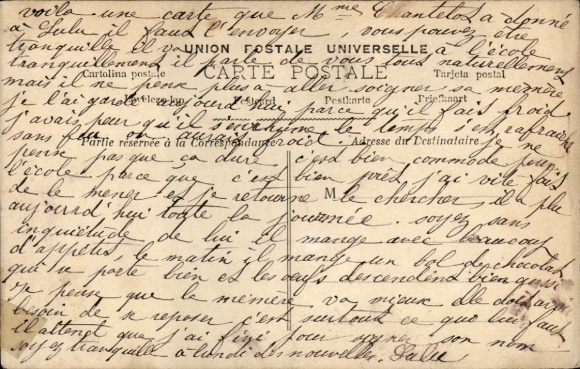 voila une carte que Mme Chantelot a donné
à Lulu il faut l'envoyer, vous pouvez être
tranquille il va à l'école
UNION POSTALE UNIVERSELLE
tranquillement il parle de vous tous naturellement
CARTE POSTALE
Cartolina postale
Tarjeta postal
mais il ne pense plus a aller soigner sa memère
Postkarte
Briefkaart
je l'ai gardé aujourd'hui parce qu'il fais froid
j'avais peur qu'il s'enrhume le temps s'en rafraichi
Partie réservée à la Correspondance
Adresse du Destinataire
sans feu on aurait froid. je ne
pense pas que ça dure c'est bien commode pour
l'école parce que c'est bien près j'ai vite fais
M
de le mener et je retourne le chercher, il a plu
aujourd'hui toute la journée. soyez sans
inquiétude de lui il mange avec beaucoup
d'appétit, le matin il mange un bol de chocolat
qui se porte bien et les œufs descendent bien aussi
Je pense que la memère va mieux elle doit avoir
besoin de se reposer c'est surtout ce qui lui faut
il attend que j'ai fini pour signer son nom
soyez tranquille à lundi des nouvelles. Lulu